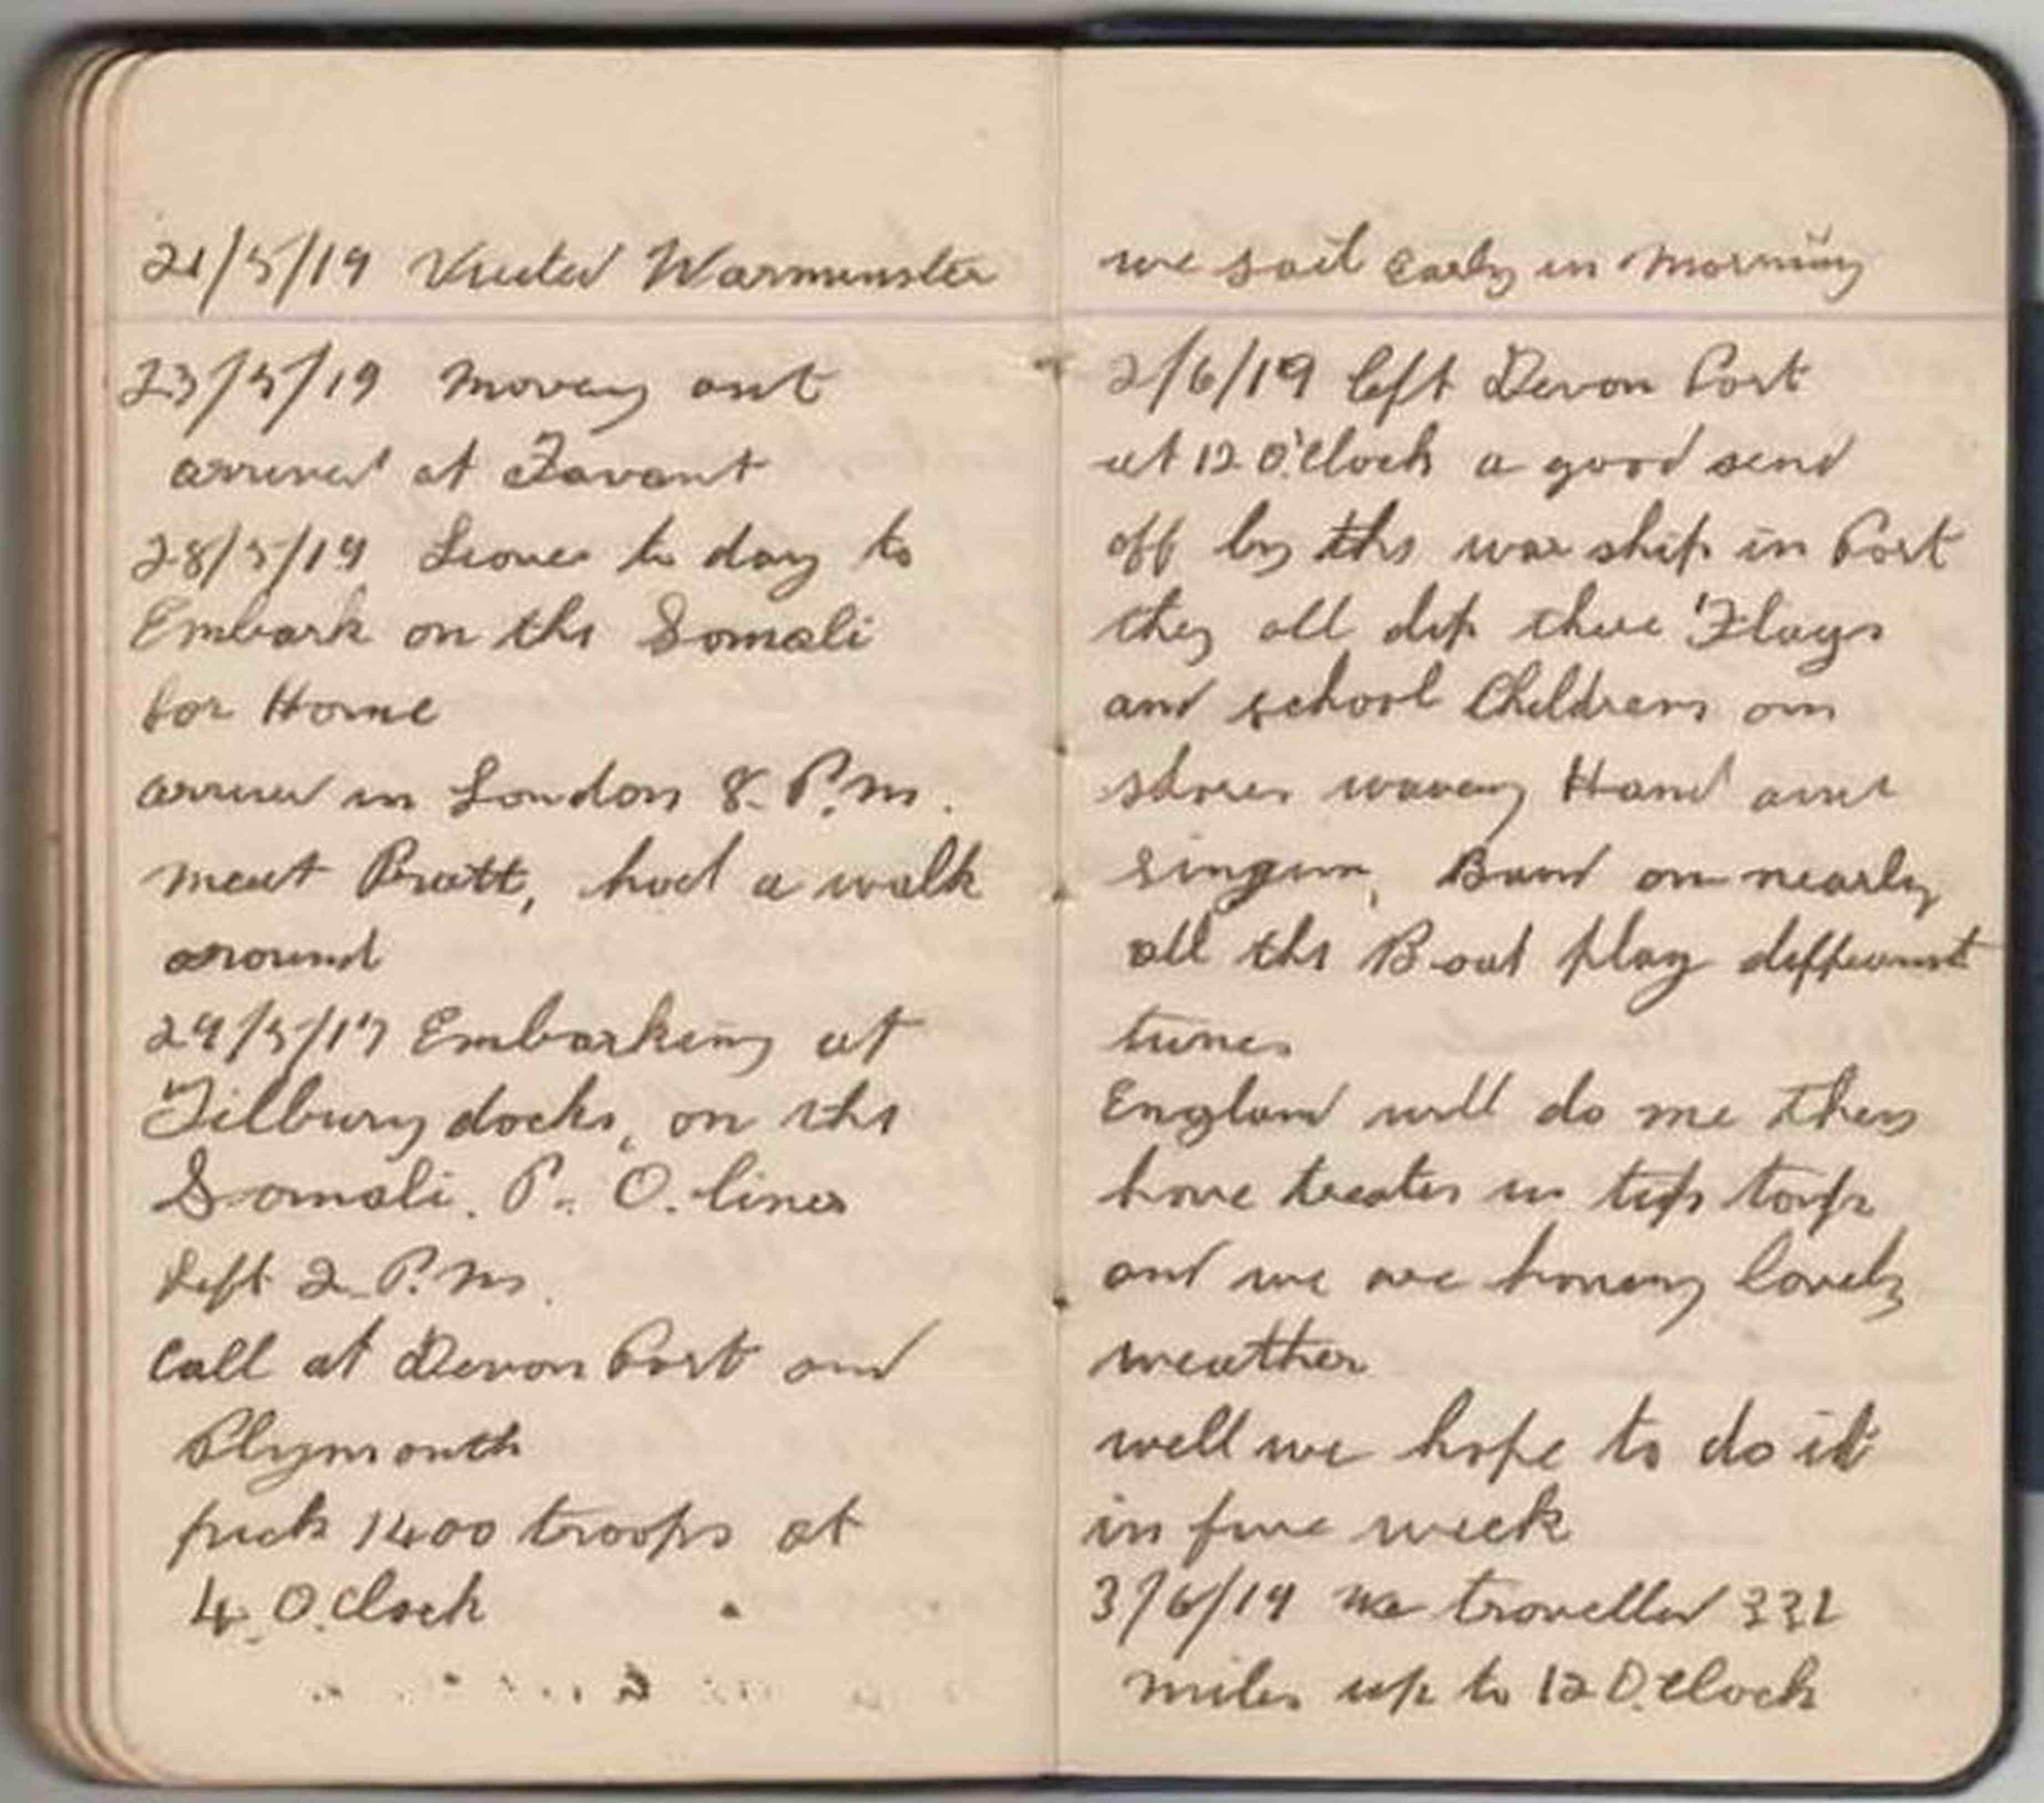 21/5/19 Visited Warminster
23/5/19 Moving out
arrived at Fovant
28/5/19 Leave to day to
Embark on the Somali
for Home
arrived in London 8. P.m.
meat Pratt, had a walk
around
29/5/19 Embarking at
Tilbury docks, on the
Somali. P. O. lines
left 2 P.m.
Call at Devon Port and
Plymouth
pick 1400 troops at
4. O.Clock
we sail Early in Morning
2/6/19 left Devon Port
at 12 O'Clock a good send
off by the war ship in Port
they all dip there Flags
and school Childrens on
shores waving Hand and
singing, Band on nearly
all the Boat play different
tunes
England will do me they
have treated us tip top
and we are having lovely
weather
well we hope to do it
in five week
3/6/19 we travelled 332
miles up to 12 O.Clock